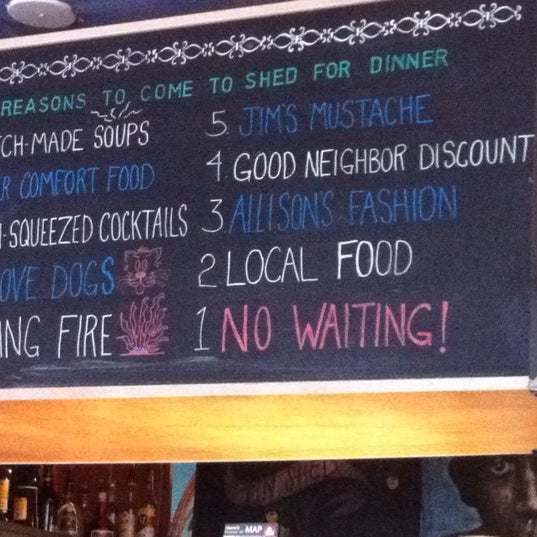 REASONS TO COME TO SHED FOR DINNER
TCH-MADE SOUPS
R COMFORT FOOD
-SQUEEZED COCKTAILS
OVE DOGS
ING FIRE
5. JIM'S MUSTACHE
4 GOOD NEIGHBOR DISCOUNT
3. ALLISON'S FASHION
2 LOCAL FOOD
1 NO WAITING!
SHED
MAP